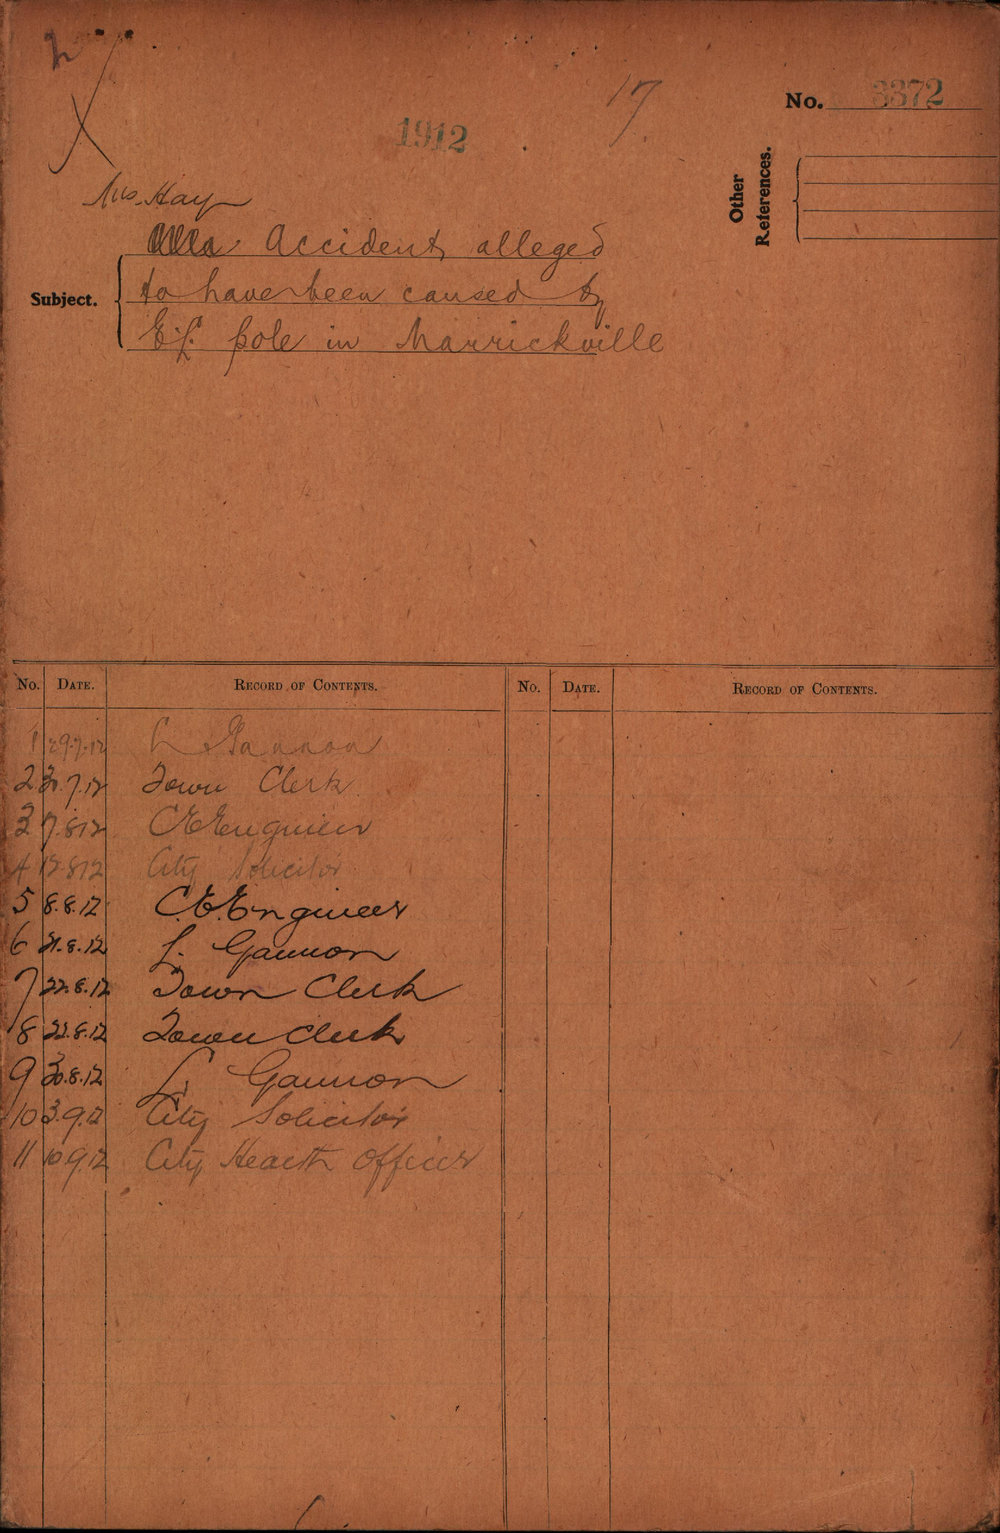 2
17
No. 3372
1912
Other
References.
Mrs. Hay
Accident alleged
Subject.
to have been caused by
E.L. pole in Marrickville
No. DATE. RECORD OF CONTENTS. No. DATE. RECORD OF CONTENTS.
1 29.7.12 L Gannon
2 30.7.12 Town Clerk
3 7.8.12 C E Engineer
4 12.8.12 City Solicitor
5 8.8.12 C.E.Engineer
6 21.8.12 L. Gannon
7 22.8.12 Town Clerk
8 22.8.12 Town Clerk
9 30.8.12 L. Gannon
10 3.9.12 City Solicitor
11 10.9.12 City Health Officer